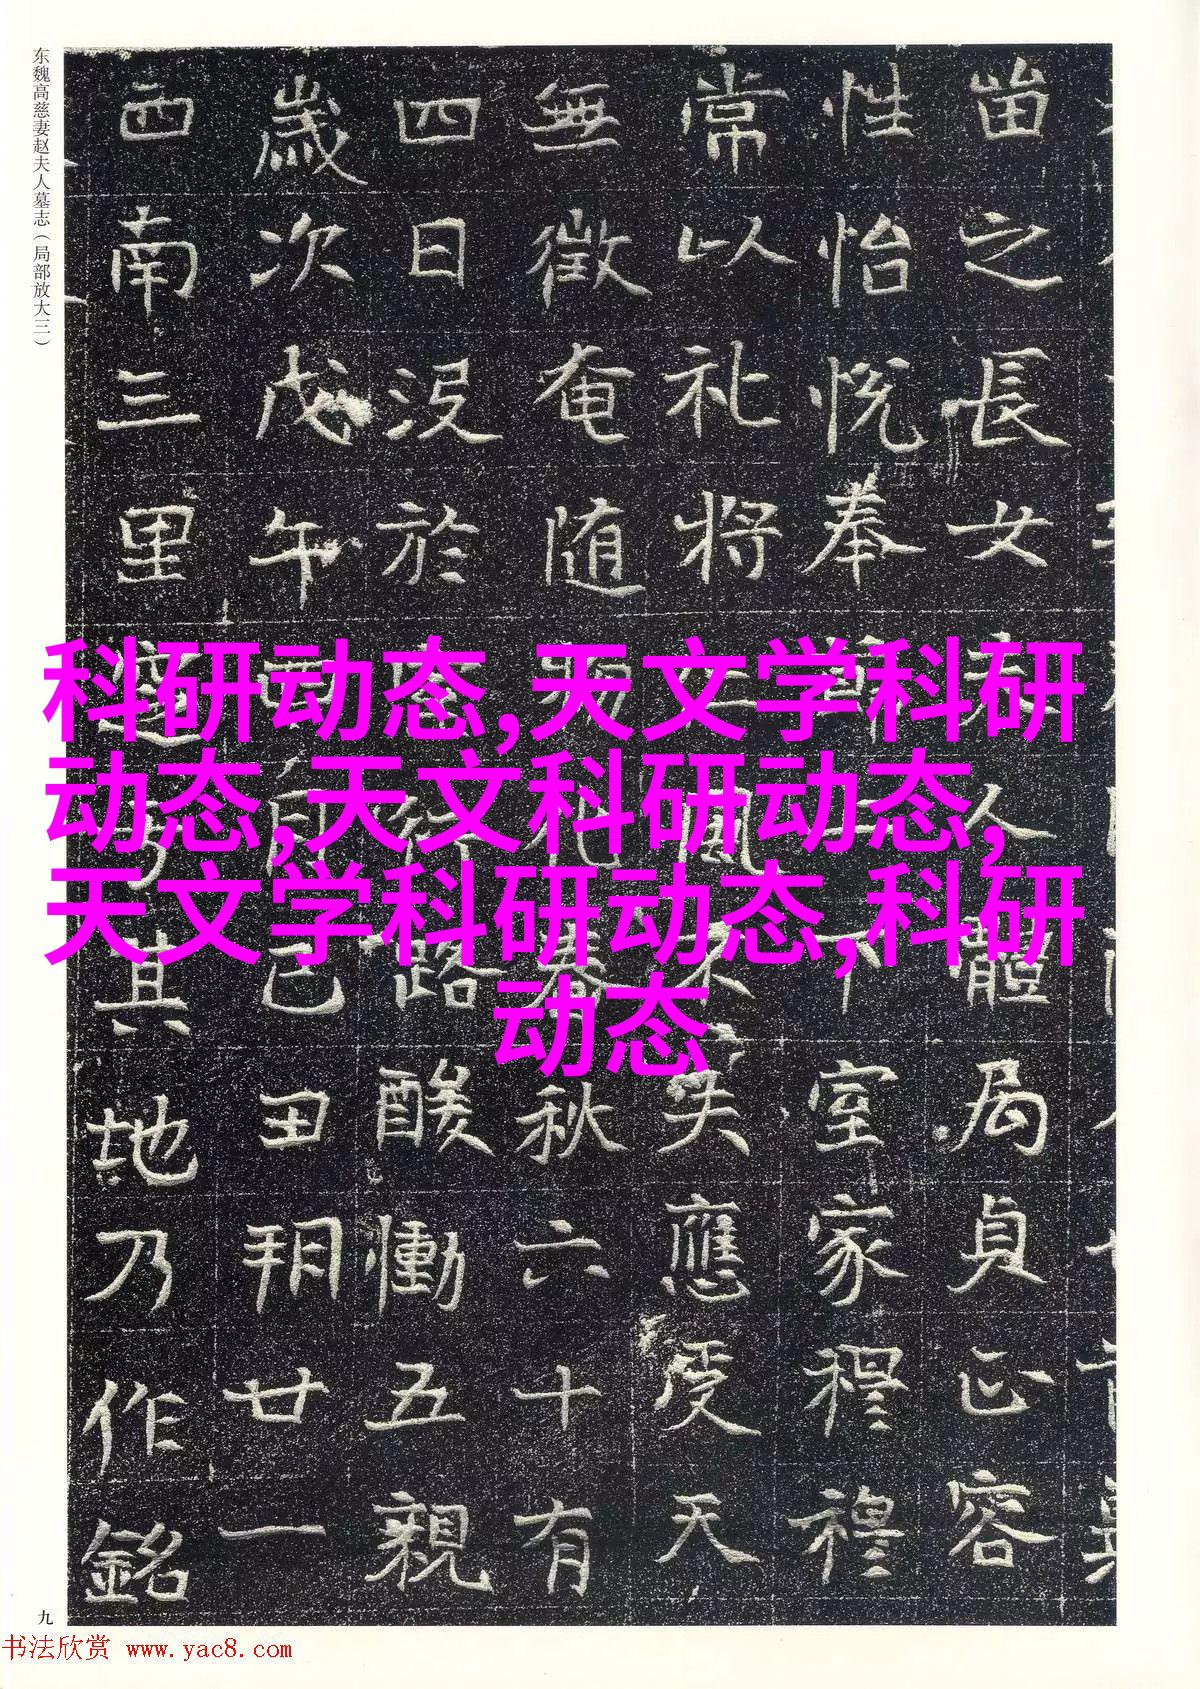 东魏高慈妻赵夫人墓志（局部放大三）
苗之長女夫人體局貞正容
性怡悦奉下室家穆穆
常以礼将風不失應受天
無徵奄随化春秋六十有
四日没於行路酸慟五親
歲次戊午己丑朔廿一
西南三里其地乃作銘
科研动态,天文学科研
动态,天文科研动态,
天文学科研动态,科研
动态
九
书法欣赏 www.yac8.com